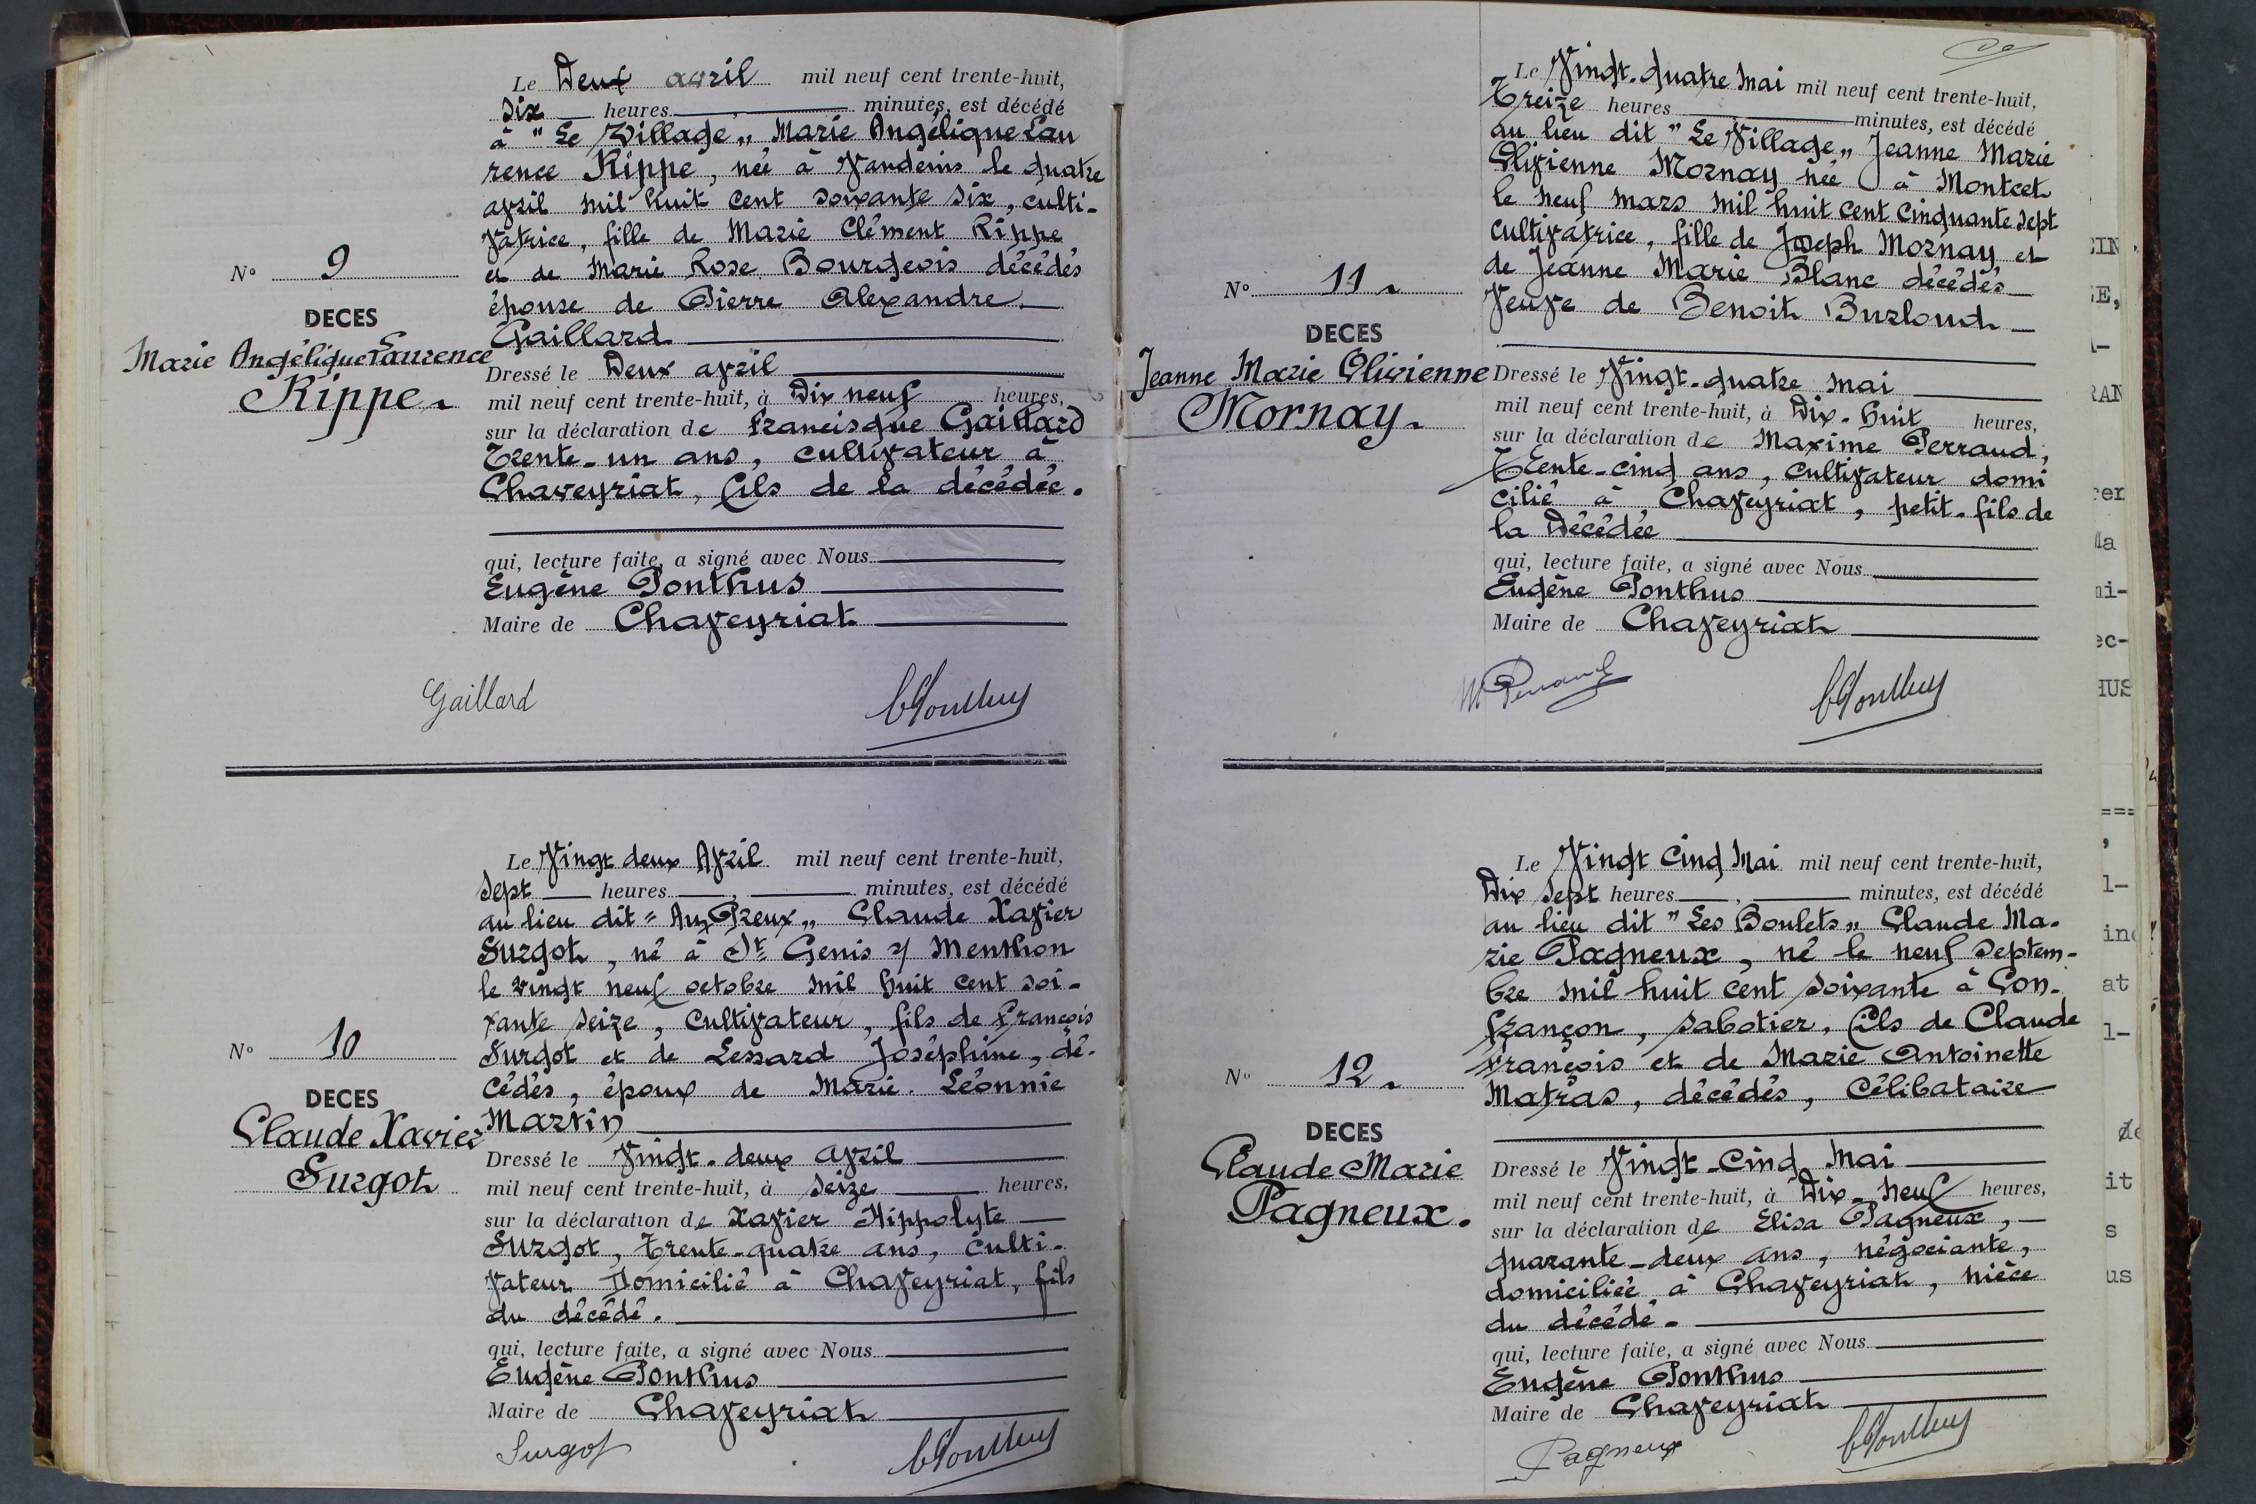 Le Deux avril mil neuf cent trente-huit,
six heures minutes, est décédé
à "Le Village" Marie Angélique Lau
rence Rippe, née à Vandeins le quatre
avril mil huit cent soixante six, culti-
vatrice, fille de Marie Clément Rippe
et de Marie Rose Bourgeois décédés
épouse de Pierre Alexandre
Gaillard
N° 9
DECES
Marie Angélique Laurence
Rippe.
Dressé le Deux avril
mil neuf cent trente-huit, à Dix neuf heures,
sur la déclaration de Francisque Gaillard
Trente-un ans, cultivateur à
Chaveyriat, fils de la décédée.
qui, lecture faite, a signé avec Nous
Eugène Ponthus
Maire de Chaveyriat
Gaillard
Le Vingt deux Avril mil neuf cent trente-huit,
sept heures, minutes, est décédé
au lieu dit "Aux Preux" Claude Xavier
Surgot, né à St Genis s/ Menthon
le vingt neuf octobre mil huit cent soi-
xante seize, cultivateur, fils de François
Surgot et de Lessard Joséphine, dé-
cédés, époux de Marie Léonnie
Martin
N° 10
DECES
Claude Xavier
Surgot
Dressé le Vingt-deux avril
mil neuf cent trente-huit, à seize heures,
sur la déclaration de Xavier Hippolyte
Surgot, Trente-quatre ans, culti-
vateur Domicilié à Chaveyriat, fils
du décédé.
qui, lecture faite, a signé avec Nous
Eugène Ponthus
Maire de Chaveyriat
Surgot
Le Vingt-quatre Mai mil neuf cent trente-huit,
Treize heures minutes, est décédé
au lieu dit "Le Village" Jeanne Marie
Olivienne Mornay née à Montcet
le neuf mars mil huit cent cinquante sept
cultivatrice, fille de Joseph Mornay et
de Jeanne Marie Blanc décédés
Veuve de Benoit Burloud
N° 11
DECES
Jeanne Marie Olivienne
Mornay.
Dressé le Vingt-quatre mai
mil neuf cent trente-huit, à Dix-huit heures,
sur la déclaration de Maxime Perraud,
Trente-cinq ans, cultivateur domi
cilié à Chaveyriat, petit-fils de
la Décédée
qui, lecture faite, a signé avec Nous
Eugène Ponthus
Maire de Chaveyriat
M Perraud
Le Vingt Cinq Mai mil neuf cent trente-huit,
Dix sept heures, minutes, est décédé
au lieu dit "Les Boulets" Claude Ma-
rie Pagneux, né le neuf septem-
bre mil huit cent soixante à Con-
françon, sabotier, fils de Claude
François et de Marie Antoinette
Matras, décédés, célibataire
N° 12
DECES
Claude Marie
Pagneux.
Dressé le Vingt-Cinq Mai
mil neuf cent trente-huit, à Dix-neuf heures,
sur la déclaration de Elisa Pagneux,
quarante-deux ans, négociante,
domiciliée à Chaveyriat, nièce
du décédé.
qui, lecture faite, a signé avec Nous
Eugène Ponthus
Maire de Chaveyriat
Pagneux